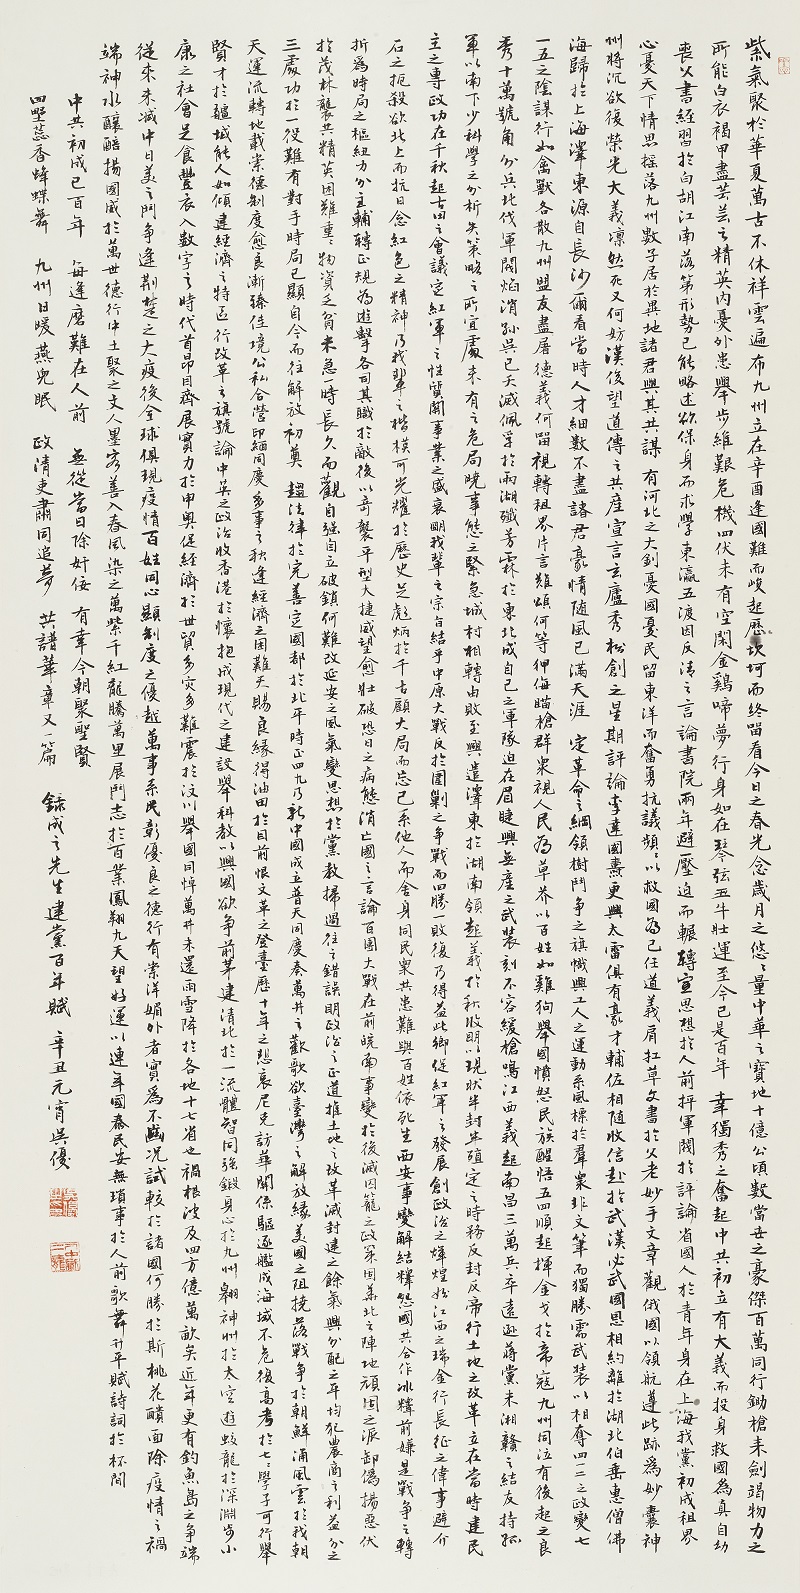 紫氣聚於華夏萬古不休祥雲遍布九州立在辛酉逢國難而峻起歷坎坷而終留看今日之春光念歲月之悠々量中華之寶地十億公頃數當世之豪傑百萬同行鋤槍耒劍竭物力之
所能白衣褐甲盡芸芸之精英內憂外患舉步維艱危機四伏未有空閑金鷄啼夢行身如在琴弦五牛壯運至今已是百年 幸獨秀之奮起中共初立有大義而投身救國為真自幼
喪父書經習於白胡江南落第形勢已能略述欲保身而求學東瀛五渡因反清之言論書院兩年避壓迫而輾轉宣思想於人前抨軍閥於評論省國人於青年身在上海我黨初成租界
心憂天下情思摇落九州數子居於異地諸君與其共謀 有河北之大釗憂國憂民留東洋而奮勇抗議頻々以救國為己任道義肩扛草文書於父老妙手文章觀俄國以領航遵此跡為妙囊神
州將沉欲復榮光大義凛然死又何妨漢俊望道傳之共産宣言玄廬秀松創之星期評論李達國燾更與太雷俱有豪才輔佐相隨收信赴於武漢必武國恩相約離於湖北伯垂惠僧佛
海歸於上海澤東源自長沙一爾看當時人才細數不盡諸君豪情随風已滿天涯 定革命之綱領樹鬥争之旗幟興工人之運動系風標於群衆非文筆而獨勝需武装以相奪四一二之政變七
一五之陰謀行如禽獸各散九州盟友盡屠德義何留視轉租界片言難頌何等狎侮瞄槍群衆視人民為草芥以百姓如雞狗舉國憤怒民族醒悟五四順起揮金戈於帝寇九州同泣有後起之良
秀十萬號角分兵北伐軍閥焰消孫吳已夭滅佩孚於兩湖殲芳霖於東北成自己之軍隊迫在眉睫興無産之武装刻不容緩槍鳴江西義起南昌三萬兵卒遠遜蔣黨未湘贛之結友持孤
軍以南下少科學之分析失策略之所宜處未有之危局曉事態之緊急城村相轉由敗至興遣澤東於湖南領起義於秋收明以現狀半封半殖定之時務反封反帝行土地之改革立在當時建民
主之專政功在千秋起古田之會議定紅軍之性質關事業之盛衰明我輩之宗旨結乎中原大戰反於圍剿之争戰而四勝一敗復乃得益此鄉促紅軍之發展創政治之煒煌始江西之瑞金行長征之偉事避介
石之扼殺欲北上而抗日念紅色之精神乃我輩之楷模可光耀於歷史足彪炳於千古顧大局而忘己系他人而舍身同民衆共患難與百姓依死生西安事變解結釋怨國共合作冰釋前嫌是戰争之轉
折為時局之樞紐力分主輔轉正規為遊擊各司其職於敵後以奇襲平型大捷威望愈壯破恐日之病態消亡國之言論百團大戰在前皖南事變於後滅囚籠之政策固華北之陣地頑固之派卸偽揚惡伏
於茂林襲共精英困難重々物資乏貧未急一時長久而觀自强自立破鎖何難改延安之風氣變思想於黨教掃過往之錯誤明政治之正道推土地之改革滅封建之餘氣興分配之平均犯農商之利益分之
三處功於一役難有對手時局已顯自今而往解放初奠 趨法律於完善定國都於北平時正四九乃新中國成立普天同慶奏萬井之歡歌欲臺灣之解放緣美國之阻撓落戰争於朝鮮涌風雲於我朝
天運流轉地載崇德制度愈良漸臻佳境公私合營印緬同慶多事之秋逢經濟之困難天賜良緣得油田於目前恨文革之登臺歷十年之悲哀尼克訪華關係驅逐艦成海域不危復高考於七七學子可行舉
賢才於疆域能人如傾建經濟之特區行改革之旗號論中英之政治收香港於懷抱成現代之建設舉科教以興國欲争前茅建清北於一流體智同强鍛身心於九州翱神州於太空遊蛟龍於深淵步小
康之社會足食豐衣入數字之時代首昂目齊展實力於申奥促經濟於世貿多灾多難震於汶川舉國同悼萬井未還雨雪降於各地十七省也禍根波及四方億萬畝矣近年更有釣魚島之争端
從未未減中日美之鬥争逢荆楚之大疫後全球俱現疫情百姓同心顯制度之優越萬事系民彰優良之德行有崇洋媚外者實為不幽况試較於諸國何勝於斯桃花醋面除疫情之禍
端神水釀醅揚國威於萬世德行中土聚之文人墨客善入春風染之萬紫千紅龍騰萬里展鬥志於百業鳳翔九天望好運以連年國泰民安無瑣事於人前歌舞升平賦詩詞於杯間
中共初成已百年 每逢磨難在人前 無從當日除奸佞 有幸今朝聚聖賢
四墅蕊香蜂蝶舞 九州日暖燕兒眠 政清吏肅同追夢 共譜華章又一篇 錄成之先生建黨百年賦 辛丑元宵吳優